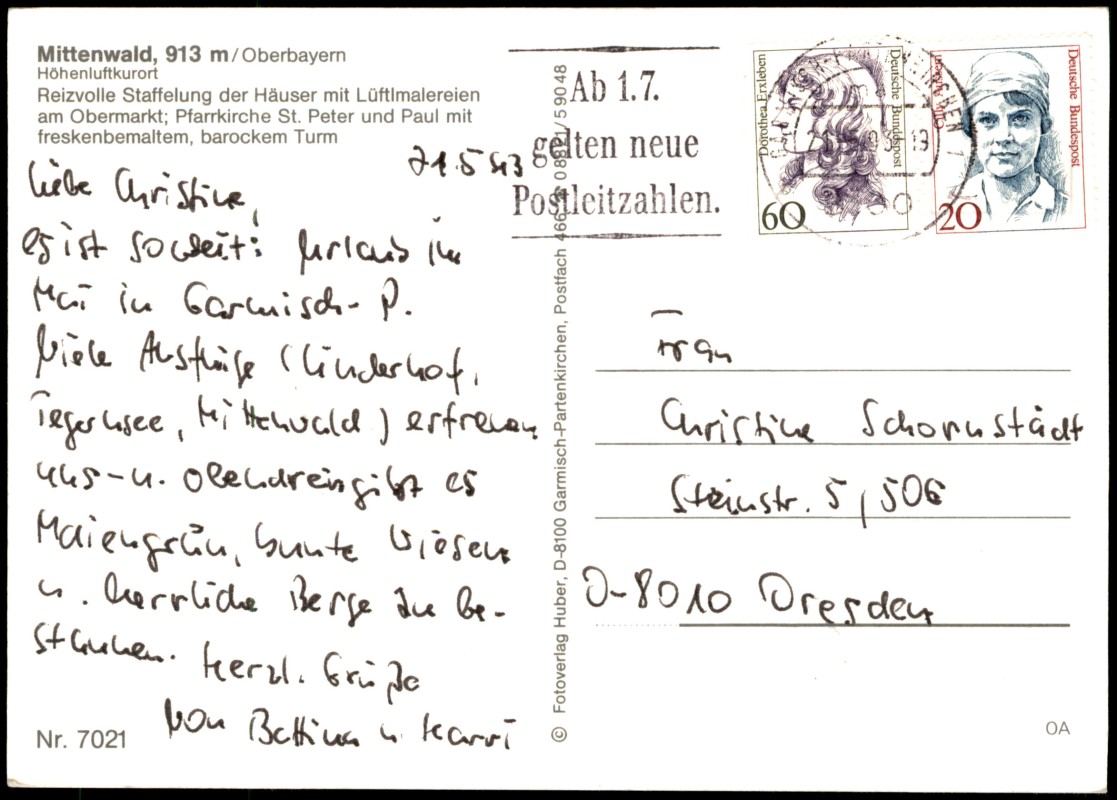 Mittenwald, 913 m/Oberbayern
Höhenluftkurort
Reizvolle Staffelung der Häuser mit Lüftlmalereien
am Obermarkt; Pfarrkirche St. Peter und Paul mit
freskenbemaltem, barockem Turm
21.5.93
Liebe Christine,
es ist soweit: Urlaub im
Mai in Garmisch-P.
Viele Ausflüge (Linderhof,
Tegernsee, Mittenwald) erfreuen
uns - u. obendrein gibt es
Maiengrün, bunte Wiesen
u. herrliche Berge zu be-
staunen. Herzl. Grüße
von Bettina u. Harri
Nr. 7021
Ab 1.7.
gelten neue
Postleitzahlen.
Dorothea Erxleben
Deutsche Bundespost
60
Deutsche Bundespost
20
© Fotoverlag Huber, D-8100 Garmisch-Partenkirchen, Postfach
Frau
Christine Schornstädt
Steinstr. 5, 506
O-8010 Dresden
OA